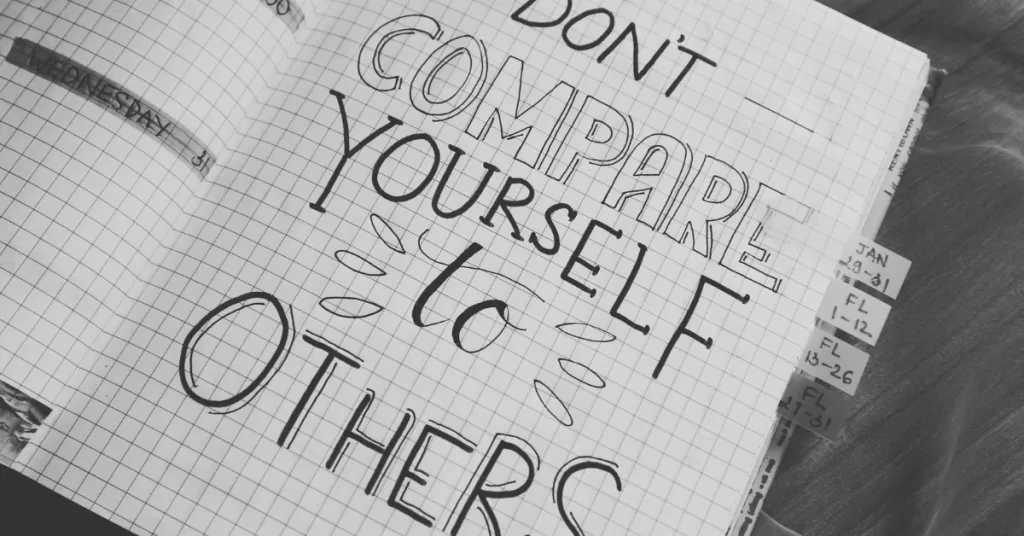 WEDNESDAY 31
DON'T
COMPARE
YOURSELF
to
OTHERS
JAN
FL
1-12
FL
13-26
FL